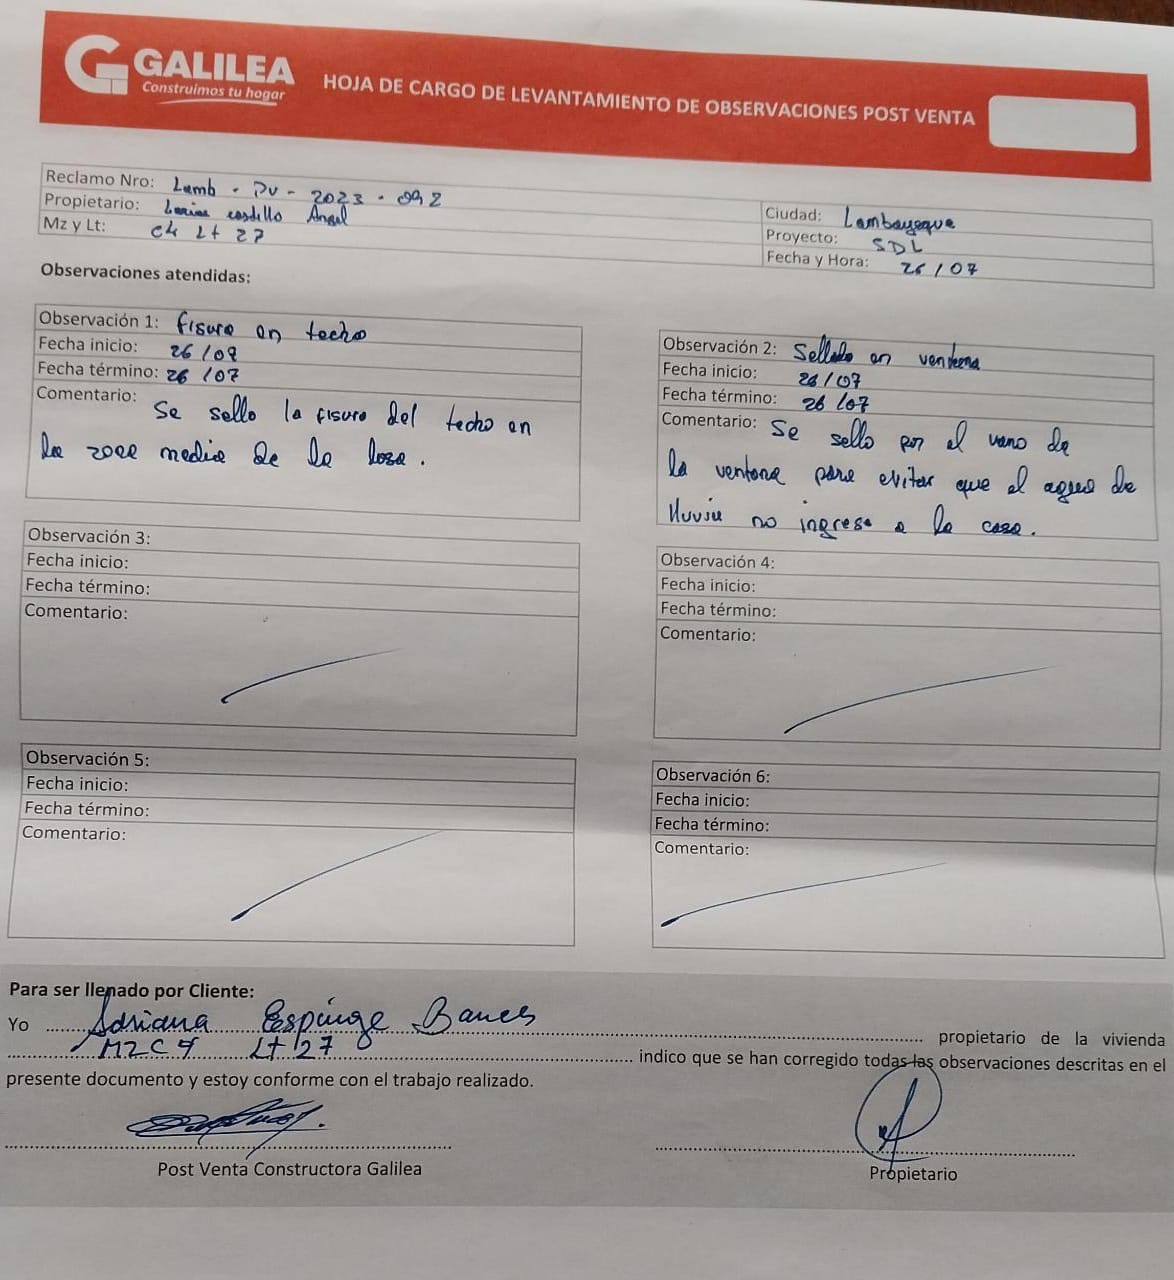 GALILEA
Construimos tu hogar
HOJA DE CARGO DE LEVANTAMIENTO DE OBSERVACIONES POST VENTA
Reclamo Nro: Lamb - PV - 2023 - 092
Propietario: castillo Angel
Mz y Lt: C4 Lt 27
Ciudad: Lambayeque
Proyecto: SDL
Fecha y Hora: 26/07
Observaciones atendidas:
Observación 1: fisura en techo
Fecha inicio: 26/07
Fecha término: 26/07
Comentario: Se sello la fisura del techo en
la zona media de la losa.
Observación 2: Sellado en ventana
Fecha inicio: 26/07
Fecha término: 26/07
Comentario: Se sello por el vano de
la ventana para evitar que el agua de
lluvia no ingrese a la casa.
Observación 3:
Fecha inicio:
Fecha término:
Comentario:
Observación 4:
Fecha inicio:
Fecha término:
Comentario:
Observación 5:
Fecha inicio:
Fecha término:
Comentario:
Observación 6:
Fecha inicio:
Fecha término:
Comentario:
Para ser llenado por Cliente:
Yo Adriana Espinge Bances propietario de la vivienda
MZ C4 Lt 27 indico que se han corregido todas las observaciones descritas en el
presente documento y estoy conforme con el trabajo realizado.
Post Venta Constructora Galilea
Propietario